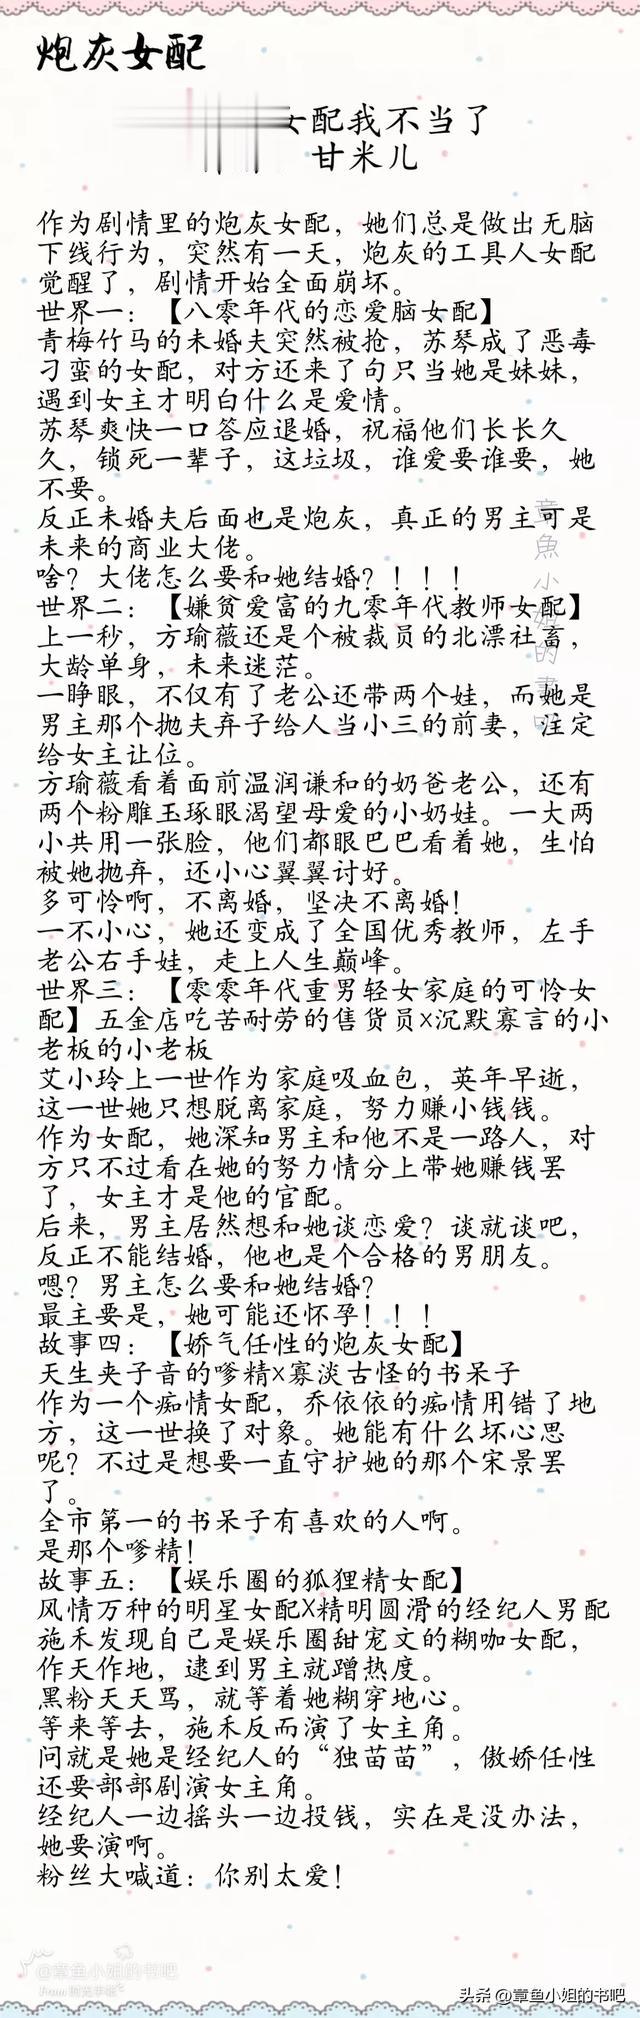 炮灰女配
女配我不当了
甘米儿
作为剧情里的炮灰女配，她们总是做出无脑
下线行为，突然有一天，炮灰的工具人女配
觉醒了，剧情开始全面崩坏。
世界一：【八零年代的恋爱脑女配】
青梅竹马的未婚夫突然被抢，苏琴成了恶毒
刁蛮的女配，对方还来了句只当她是妹妹，
遇到女主才明白什么是爱情。
苏琴爽快一口答应退婚，祝福他们长长久
久，锁死一辈子，这垃圾，谁爱要谁要，她
不要。
反正未婚夫后面也是炮灰，真正的男主可是
未来的商业大佬。
啥？大佬怎么要和她结婚？！！！！
世界二：【嫌贫爱富的九零年代教师女配】
上一秒，方瑜薇还是个被裁员的北漂社畜，
大龄单身，未来迷茫。
一睁眼，不仅有了老公还带两个娃，而她是
男主那个抛夫弃子给人当小三的前妻，注定
给女主让位。
方瑜薇看着面前温润谦和的奶爸老公，还有
两个粉雕玉琢眼渴望母爱的小奶娃。一大两
小共用一张脸，他们都眼巴巴看着她，生怕
被她抛弃，还小心翼翼讨好。
多可怜啊，不离婚，坚决不离婚！
一不小心，她还变成了全国优秀教师，左手
老公右手娃，走上人生巅峰。
世界三：【零零年代重男轻女家庭的可怜女
配】五金店吃苦耐劳的售货员x沉默寡言的小
老板的小老板
艾小玲上一世作为家庭吸血包，英年早逝，
这一世她只想脱离家庭，努力赚小钱钱。
作为女配，她深知男主和他不是一路人，对
方只不过看在她的努力情分上带她赚钱罢
了，女主才是他的官配。
后来，男主居然想和她谈恋爱？谈就谈吧，
反正不能结婚，他也是个合格的男朋友。
嗯？男主怎么要和她结婚？
最主要是，她可能还怀孕！！！
故事四：【娇气任性的炮灰女配】
天生夹子音的嗲精x寡淡古怪的书呆子
作为一个痴情女配，乔依依的痴情用错了地
方，这一世换了对象。她能有什么坏心思
呢？不过是想要一直守护她的那个宋景罢
了。
全市第一的书呆子有喜欢的人啊。
是那个嗲精！
故事五：【娱乐圈的狐狸精女配】
风情万种的明星女配X精明圆滑的经纪人男配
施禾发现自己是娱乐圈甜宠文的糊咖女配，
作天作地，逮到男主就蹭热度。
黑粉天天骂，就等着她糊穿地心。
等来等去，施禾反而演了女主角。
问就是她是经纪人的“独苗苗”，傲娇任性
还要部部剧演女主角。
经纪人一边摇头一边投钱，实在是没办法，
她要演啊。
粉丝大喊道：你别太爱！
章魚小姐的書吧
@章鱼小姐的书吧
From 时光手帐
头条 @章鱼小姐的书吧